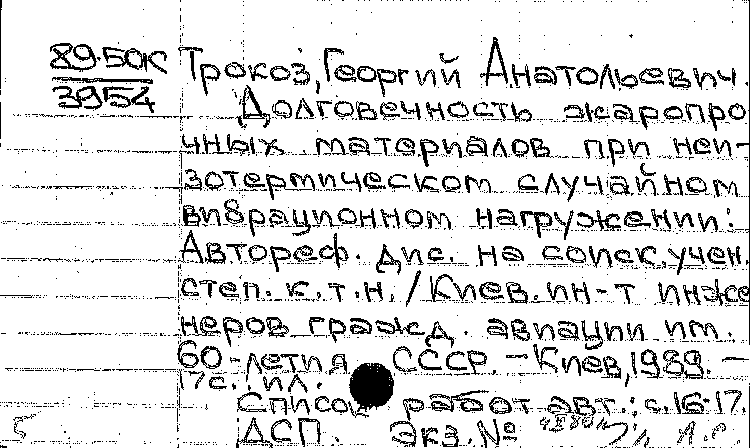 89-50К
3954
Трокоз, Георгий Анатольевич.
Долговечность жаропро
чных материалов при неи-
зотермическом случайном
вибрационном нагружении:
Автореф. дис. на соиск. учен.
степ. к.т.н. / Киев. ин-т инже
неров гражд. авиации им.
60-летия СССР. - Киев, 1989. -
17с.: ил.
Список работ авт.: с.16-17.
ДСП. Экз. №